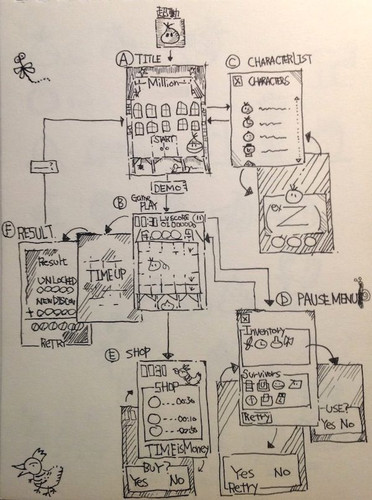 起動
A TITLE
Million
START
C CHARACTER LIST
X CHARACTERS
DEMO?
B Game PLAY
LV SCORE (11)
F RESULT
Result
UNLOCKED
RETRY
TIME UP
D PAUSE MENU
X
Inventory
Survivors
Retry
USE?
Yes No
Yes No
Retry
E SHOP
SHOP
TIME is Money
BUY?
Yes No